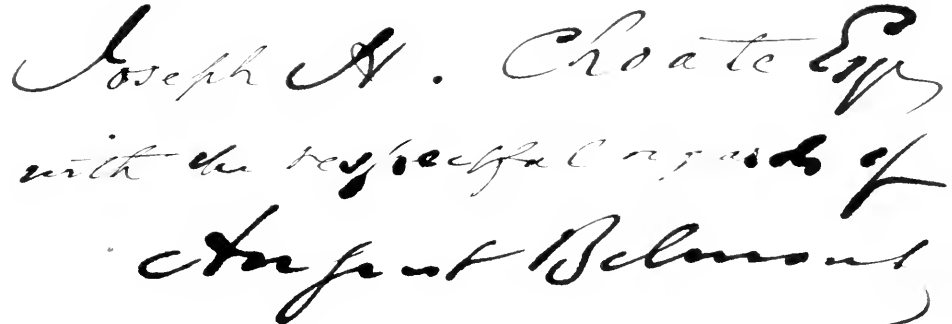 Joseph H. Choate Esqr
with the respectful regards of
August Belmont